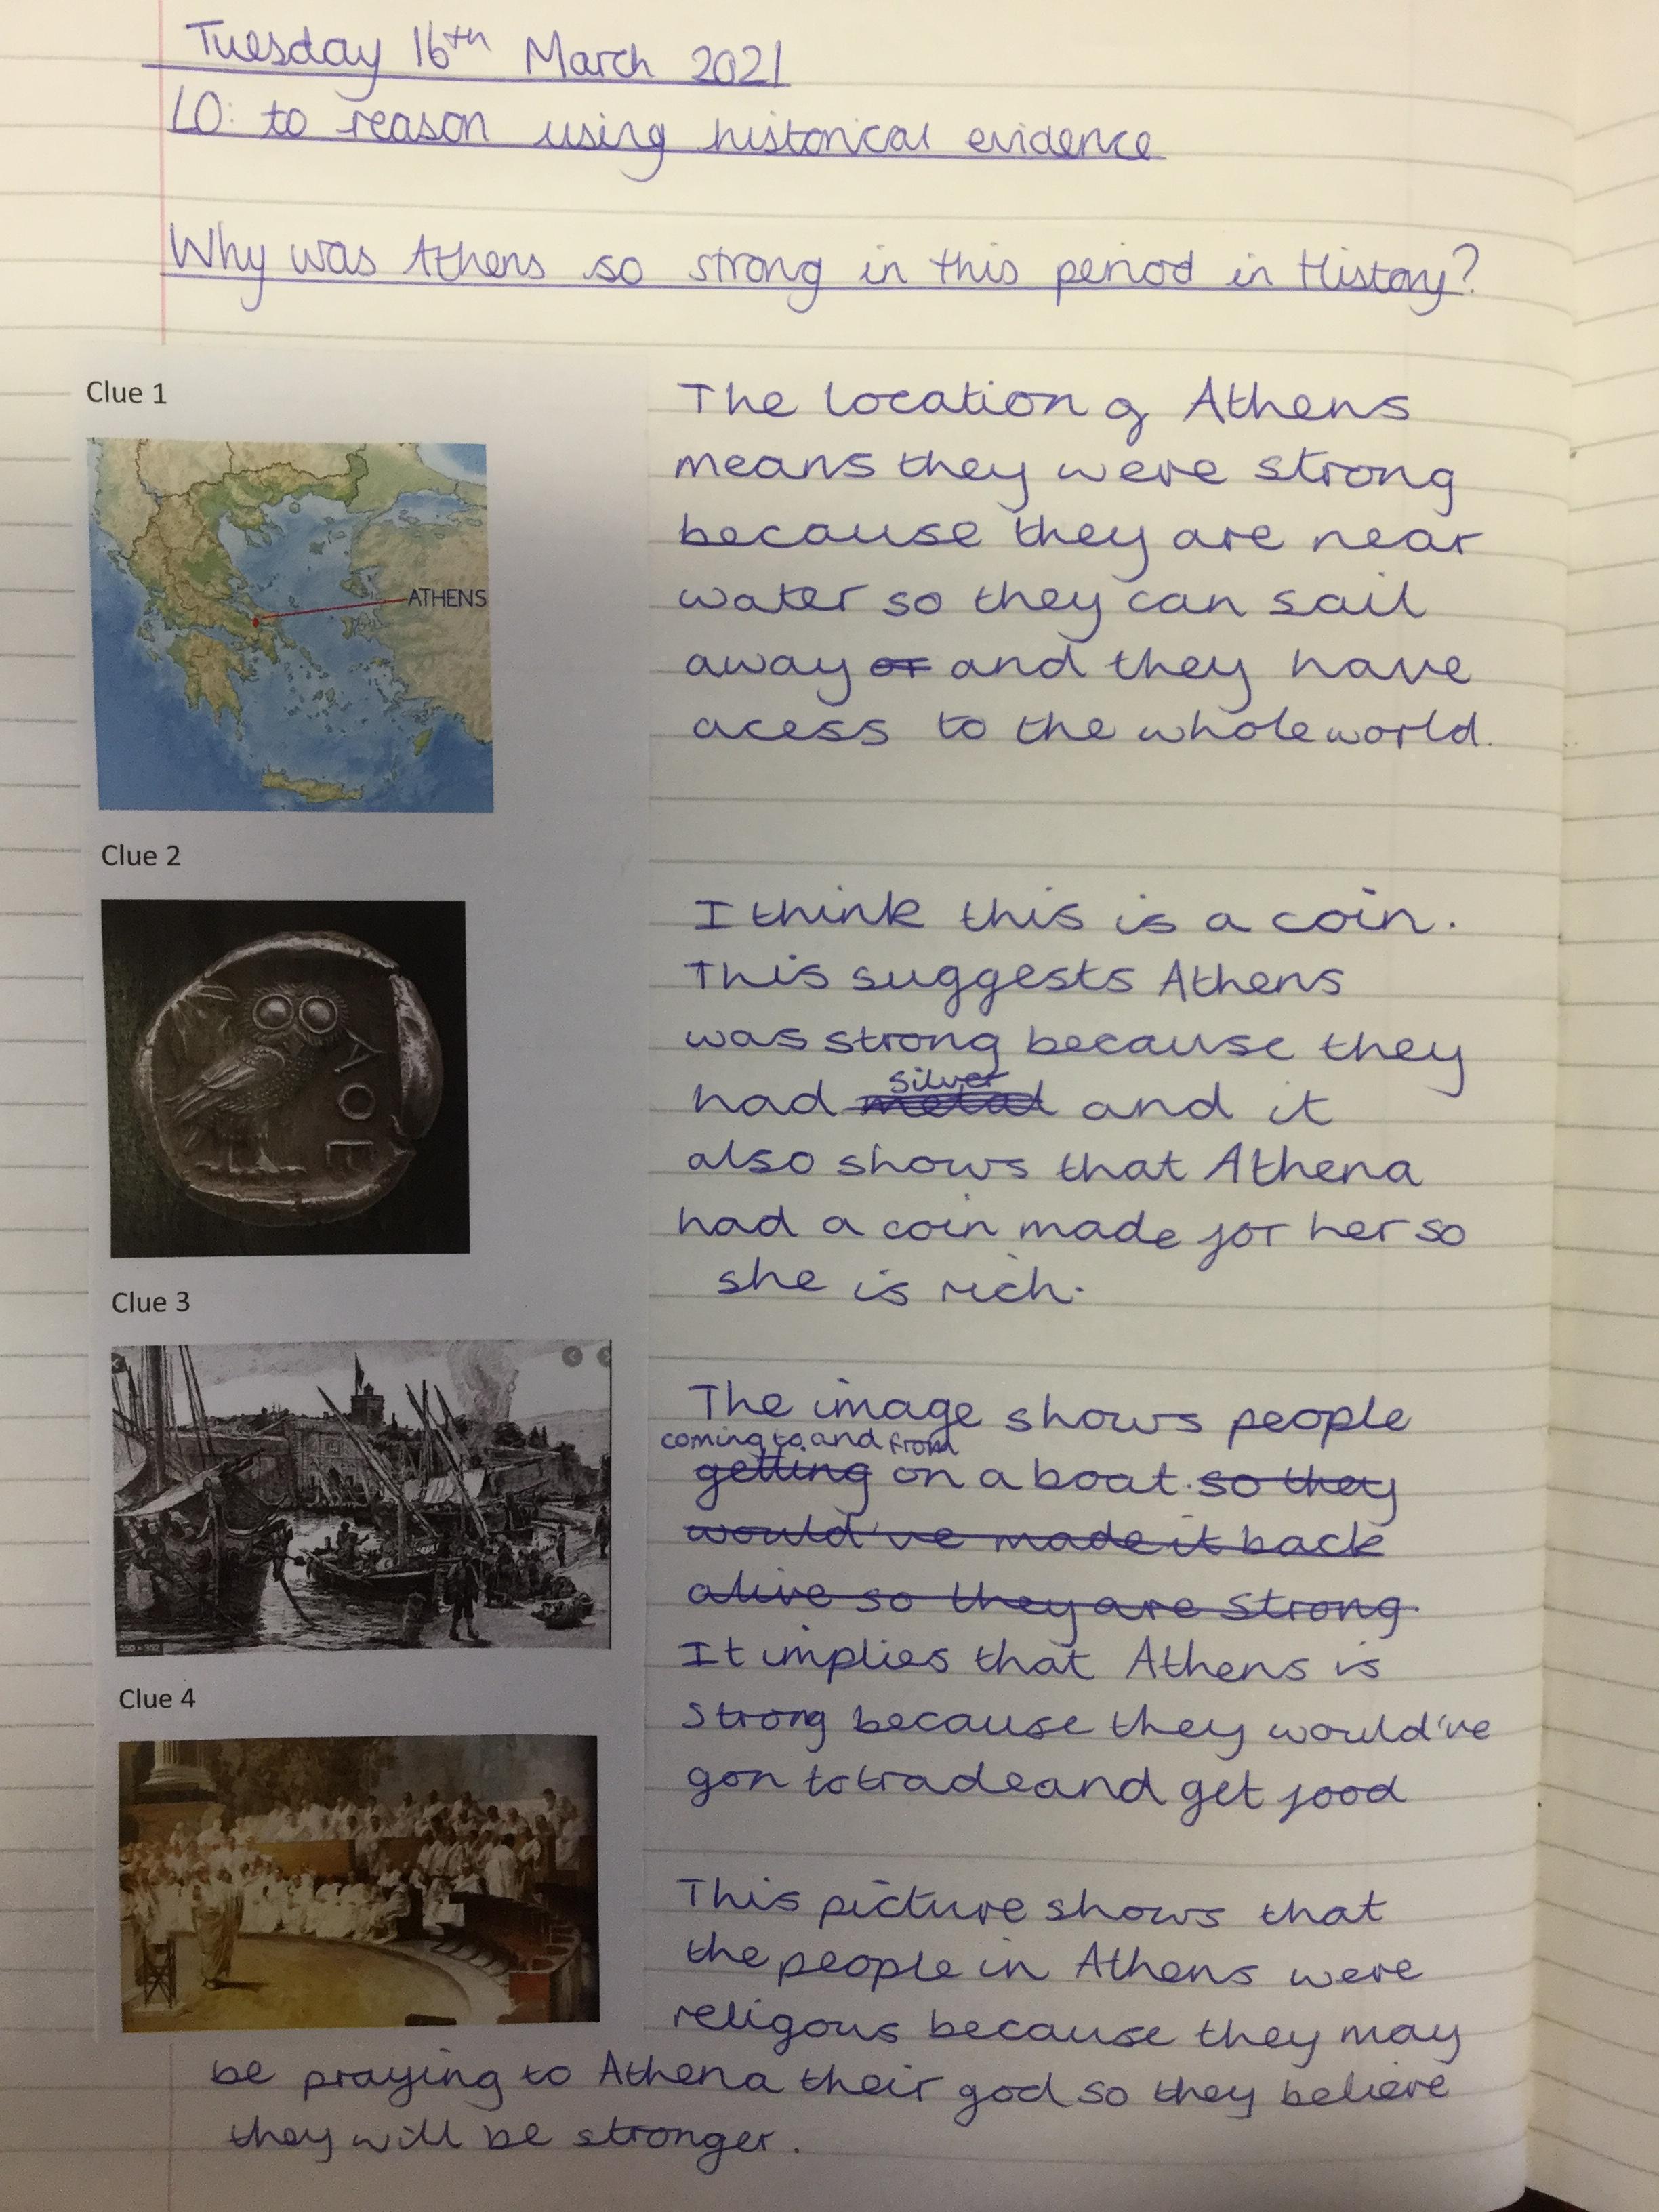 Tuesday 16th March 2021
LO: to reason using historical evidence
Why was Athens so strong in this period in History?
Clue 1
ATHENS
The location of Athens
means they were strong
because they are near
water so they can sail
away or and they have
acess to the whole world.
Clue 2
ΑΘΕ
I think this is a coin.
This suggests Athens
was strong because they
silver
had metal and it
also shows that Athena
had a coin made for her so
she is rich.
Clue 3
The image shows people
coming to and from
getting on a boat. so they
would've made it back
alive so they are strong.
It implies that Athens is
strong because they would've
gon to trade and get food
Clue 4
This picture shows that
the people in Athens were
religous because they may
be praying to Athena their god so they believe
they will be stronger.